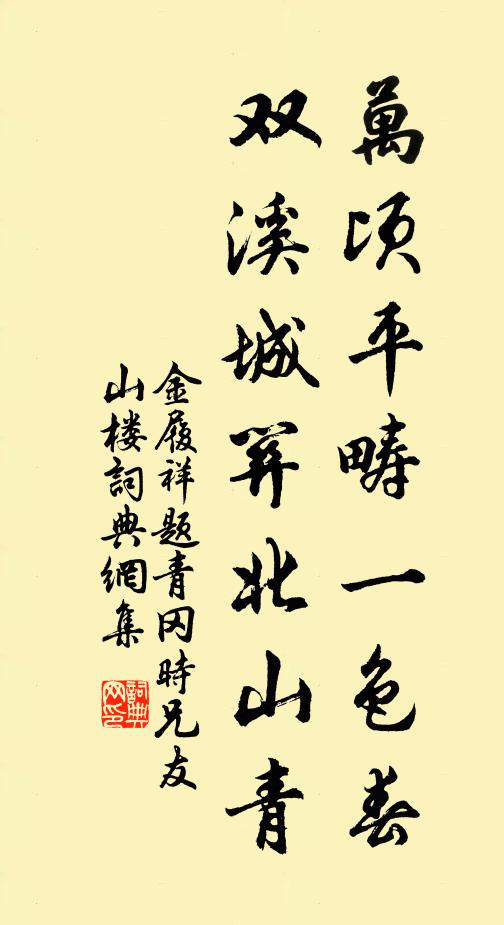 萬頃平疇一色春
双溪城開北山青
金履祥题青冈時兄友
山楼詞典網集
詞典网印